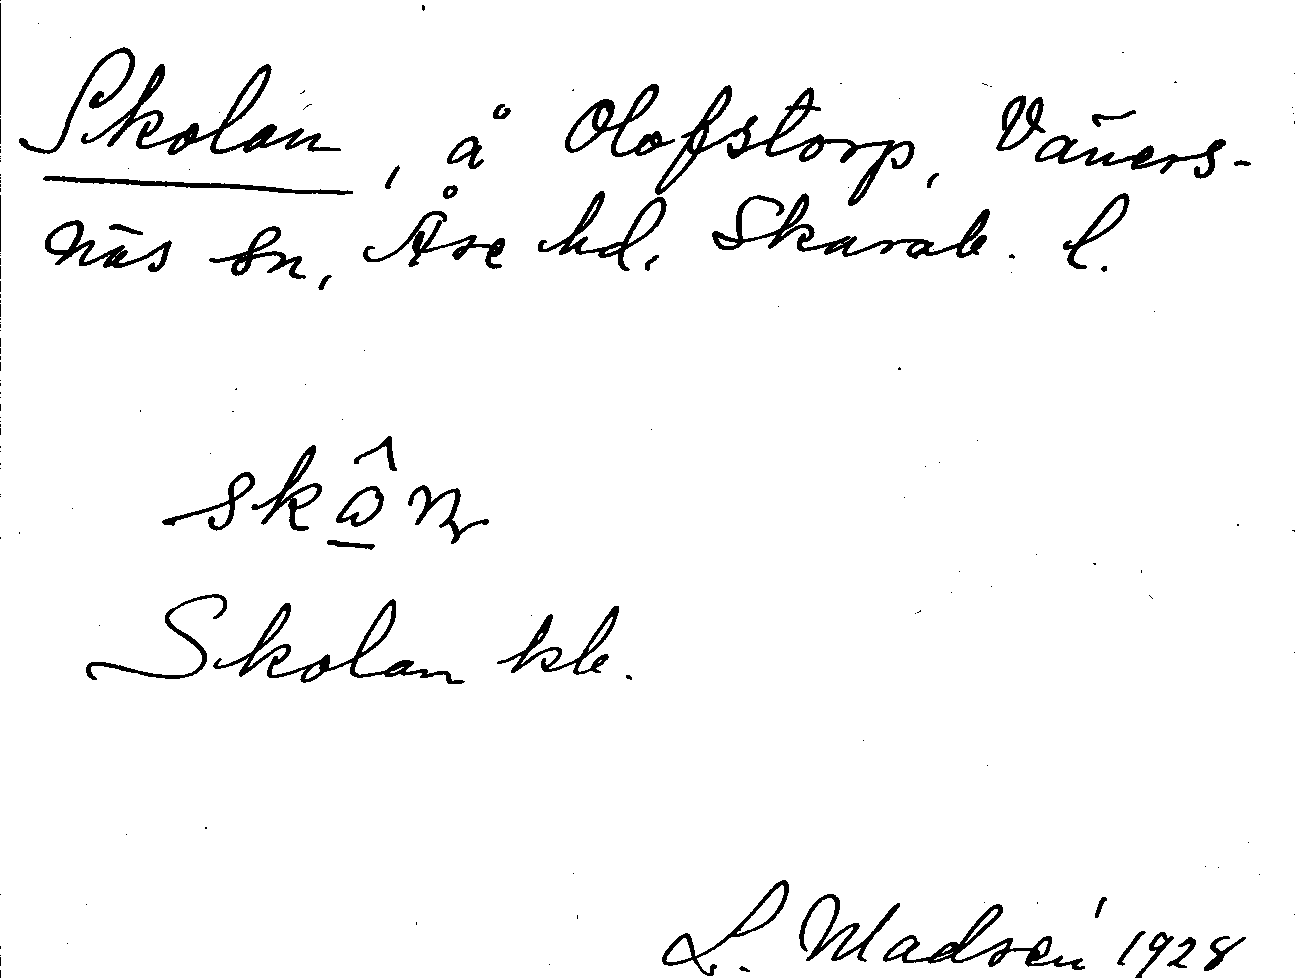 Skolan, å Olofstorp, Väners-
näs sn, Åse hd, Skarab. l.
Skolan kb.
L. Madsén 1928